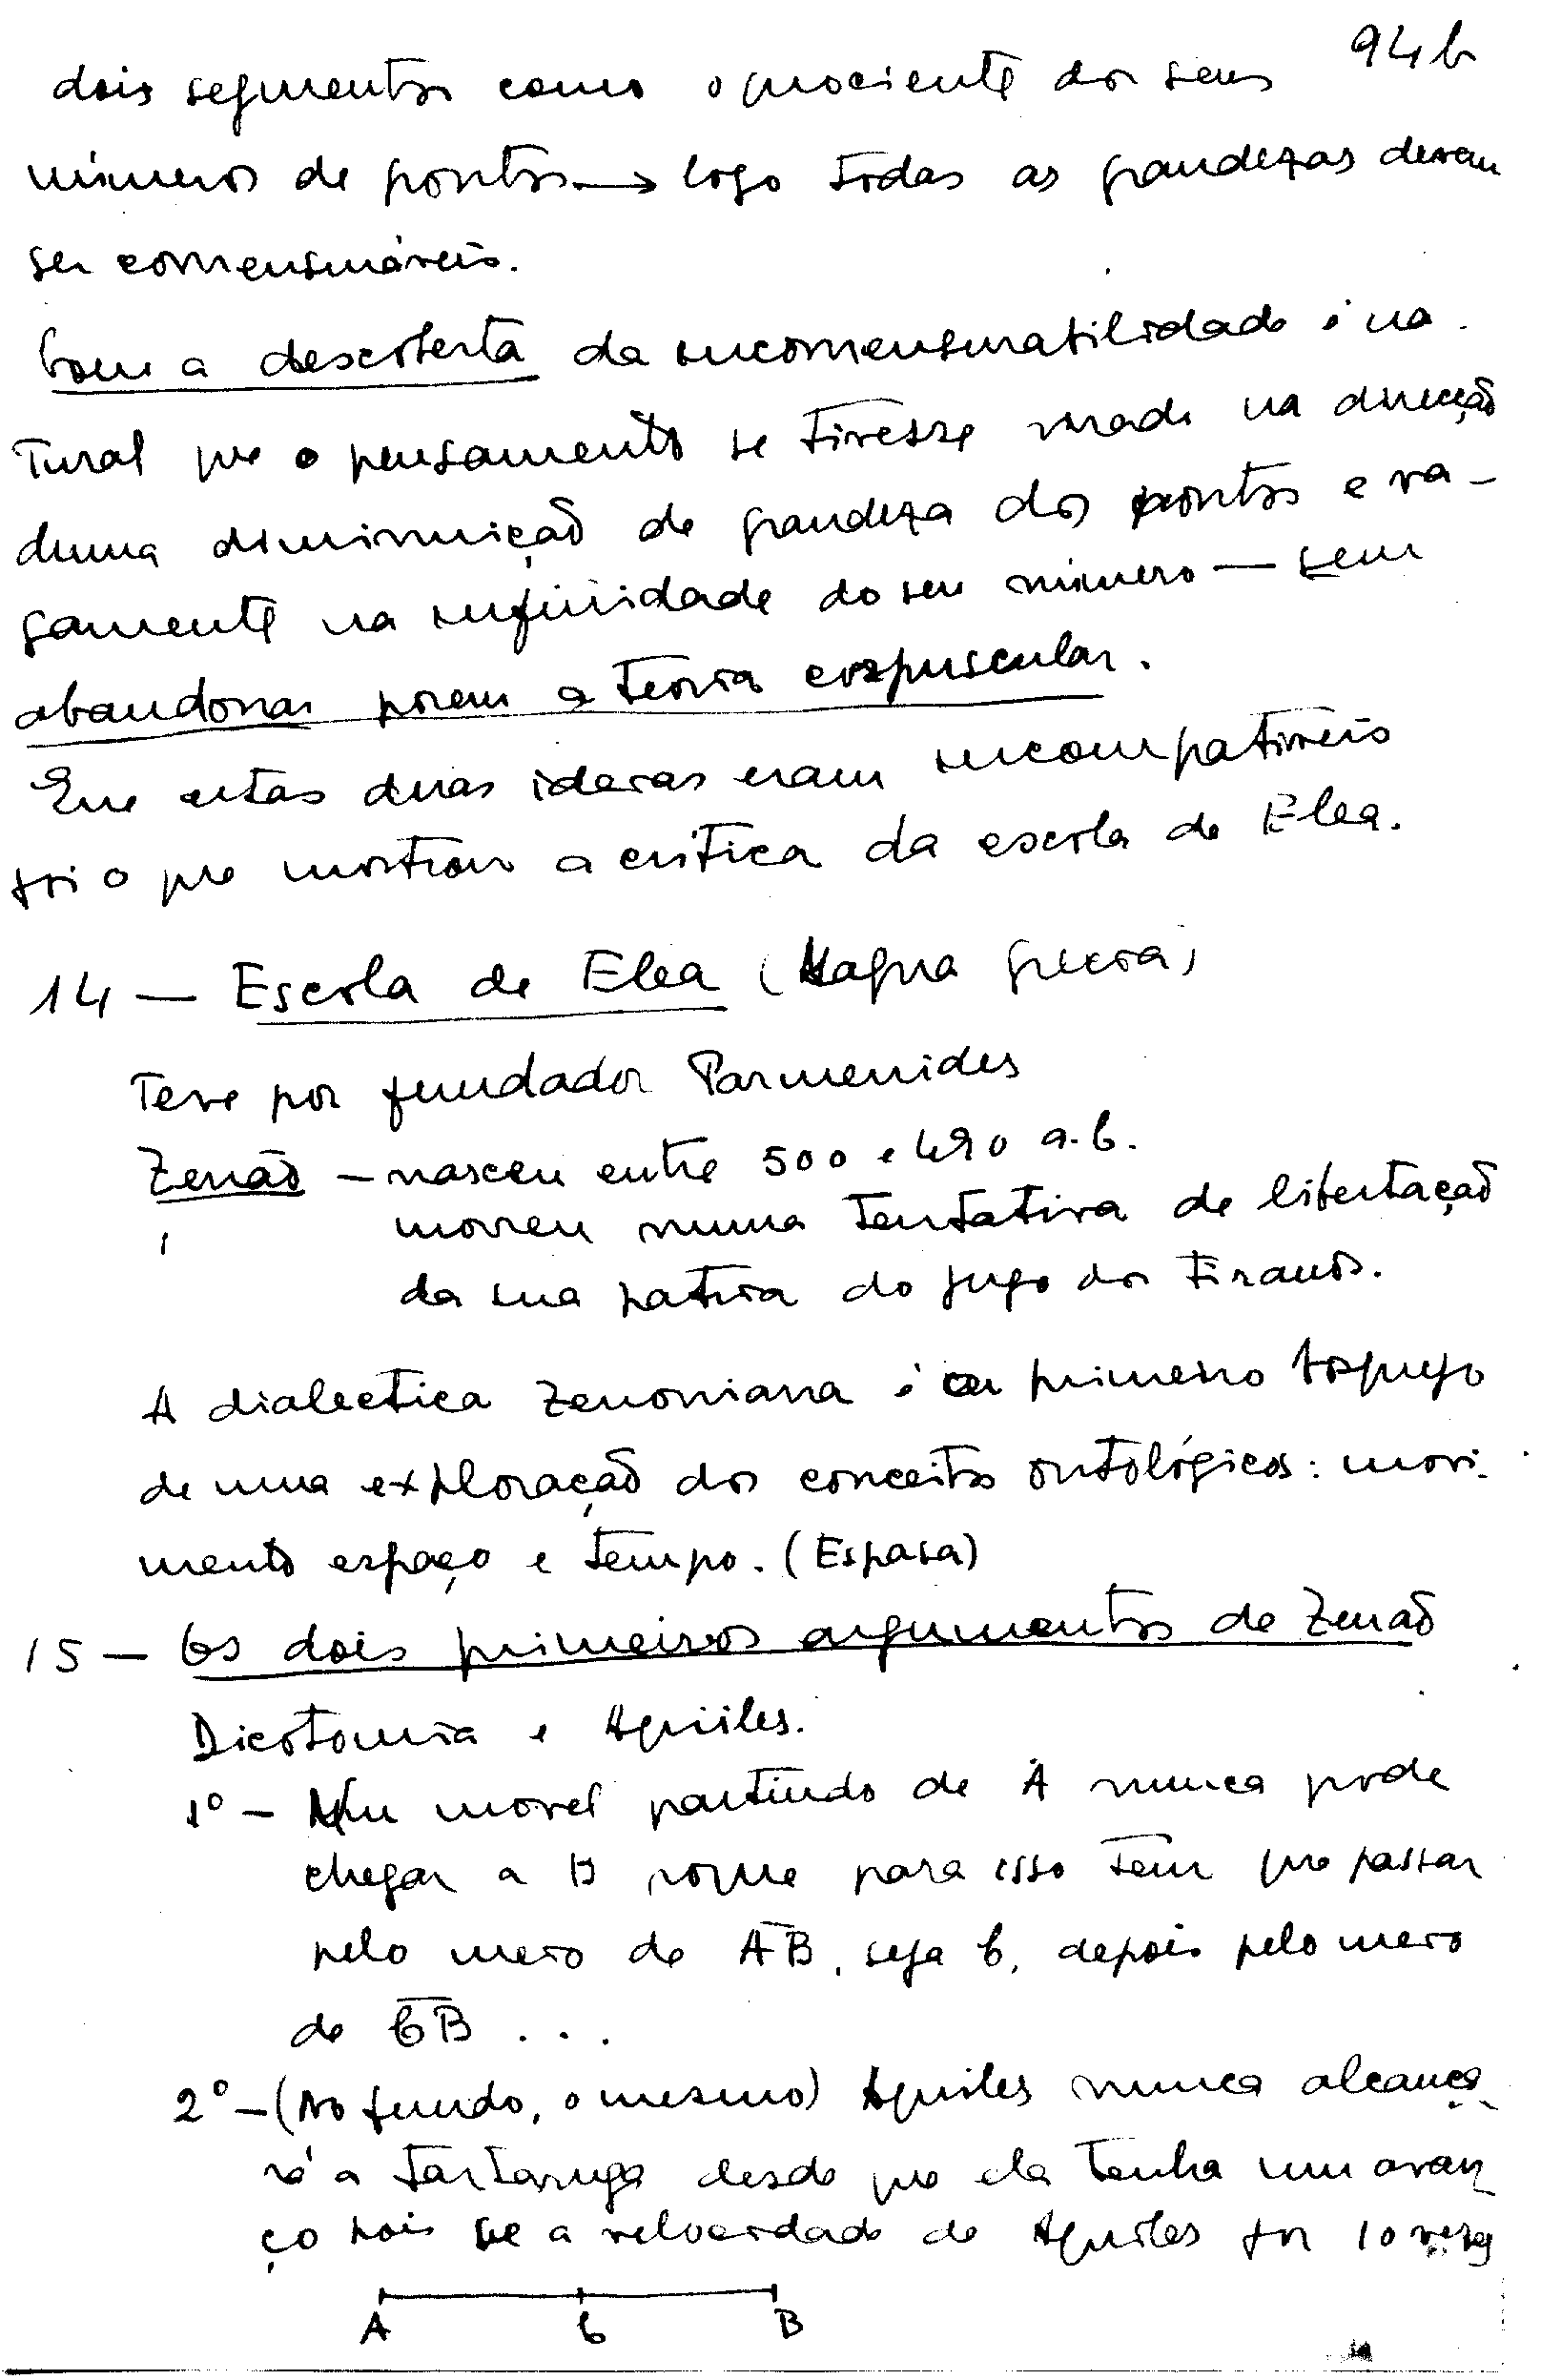 94b
dois segmentos como o quociente dos seus
números de pontos → logo todas as grandezas devem
ser comensuráveis.
Com a descoberta da incomensurabilidade é na-
tural que o pensamento se tivesse virado na direcção
duma diminuição de grandeza dos pontos e va-
gamente na infinidade do seu número — sem
abandonar porem a teoria corpuscular.
Que estas duas ideias eram incompativeis
foi o que mostrou a critica da escola de Elea.
14 — Escola de Elea (Magna Grecia)
Teve por fundador Parmenides
Zenão — nasceu entre 500 e 490 a.C.
morreu numa tentativa de libertação
da sua patria do jugo dos tiranos.
A dialectica zenoniana é o primeiro
de uma exploração dos conceitos ontológicos: movi-
mento espaço e tempo. (Espasa)
15 — Os dois primeiros argumentos de Zenão
Dicotomia e Aquiles.
1º — Um movel partindo de A nunca pode
chegar a B porque para isso tem que passar
pelo meio de AB, seja C, depois pelo meio
de CB ...
2º — (No fundo, o mesmo) Aquiles nunca alcança-
rá a tartaruga desde que ela tenha um avan
ço pois se a velocidade de Aquiles for 10 vezes
A C B